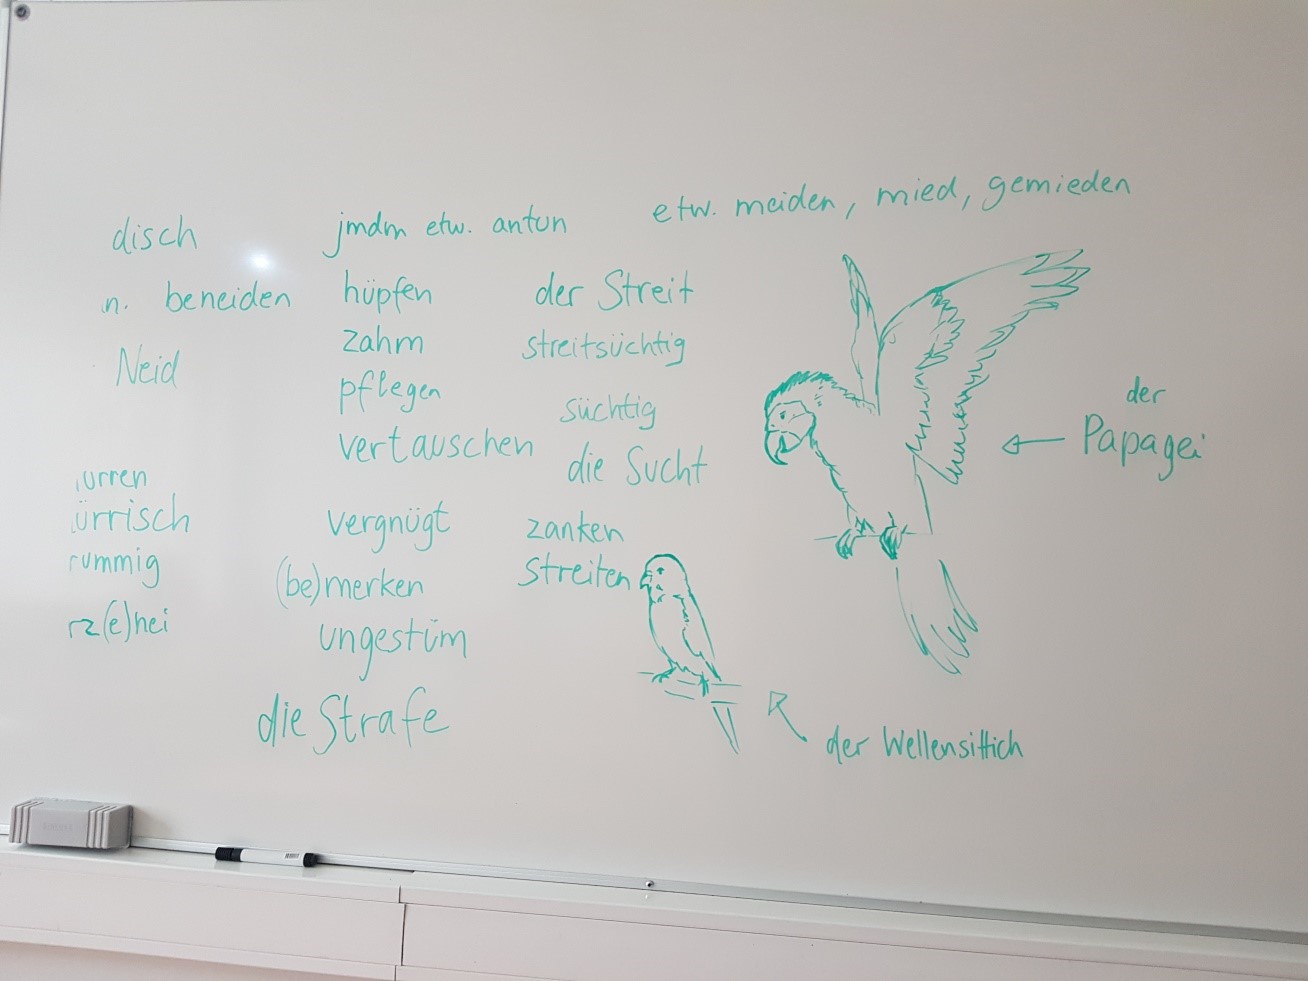 etw. meiden, mied, gemieden
jmdm etw. antun
disch
n. beneiden
hüpfen
der Streit
zahm
streitsüchtig
Neid
pflegen
süchtig
der
Papagei
vertauschen
die Sucht
urren
ürrisch
vergnügt
zanken
rummig
(be)merken
streiten
rz(e)nei
ungestüm
die Strafe
der Wellensittich